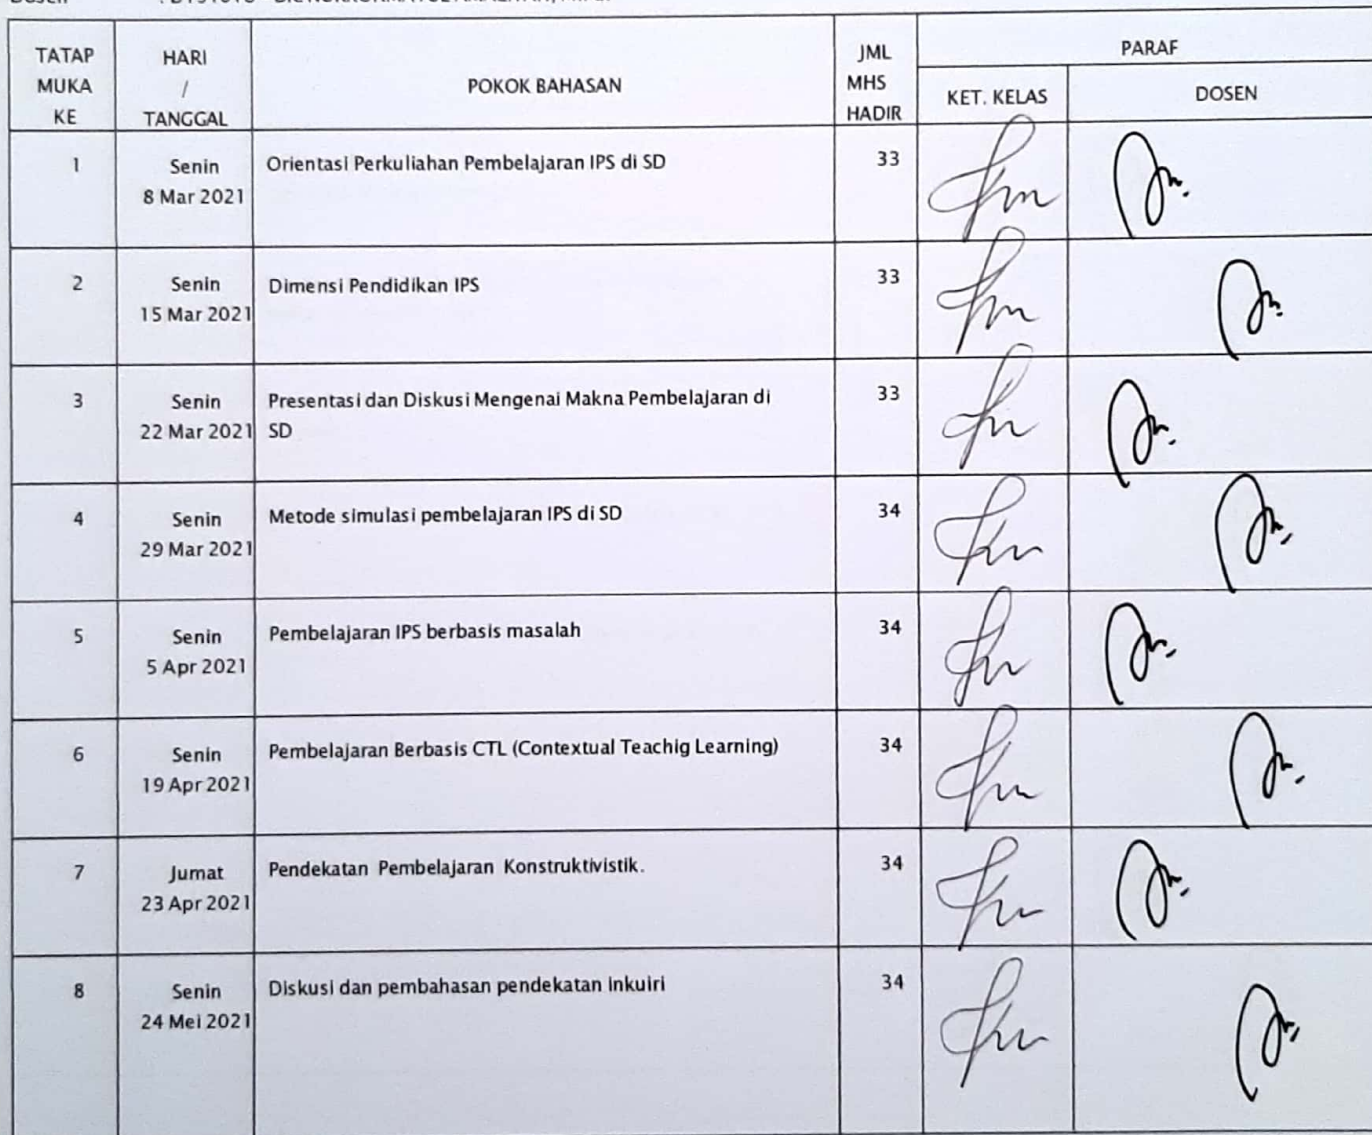 TATAP MUKA KE
HARI / TANGGAL
POKOK BAHASAN
JML MHS HADIR
PARAF
KET. KELAS
DOSEN
1 Senin 8 Mar 2021 Orientasi Perkuliahan Pembelajaran IPS di SD 33
2 Senin 15 Mar 2021 Dimensi Pendidikan IPS 33
3 Senin 22 Mar 2021 Presentasi dan Diskusi Mengenai Makna Pembelajaran di SD 33
4 Senin 29 Mar 2021 Metode simulasi pembelajaran IPS di SD 34
5 Senin 5 Apr 2021 Pembelajaran IPS berbasis masalah 34
6 Senin 19 Apr 2021 Pembelajaran Berbasis CTL (Contextual Teachig Learning) 34
7 Jumat 23 Apr 2021 Pendekatan Pembelajaran Konstruktivistik. 34
8 Senin 24 Mei 2021 Diskusi dan pembahasan pendekatan inkuiri 34